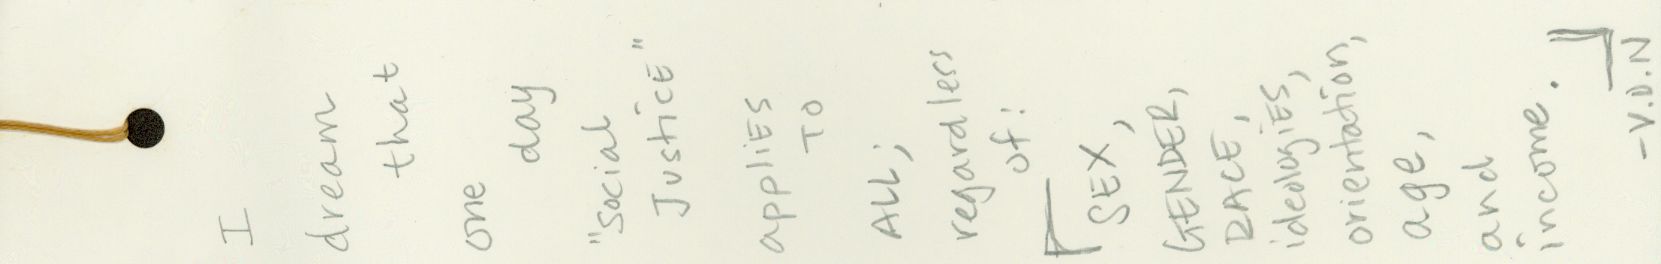 I
dream
that
one
day
"Social
JusticE"
appliEs
TO
ALL;
regardless
of:
[SEX,
GENDER,
RACE,
ideologiES,
orientation,
age,
and
income.]
-V.D.N